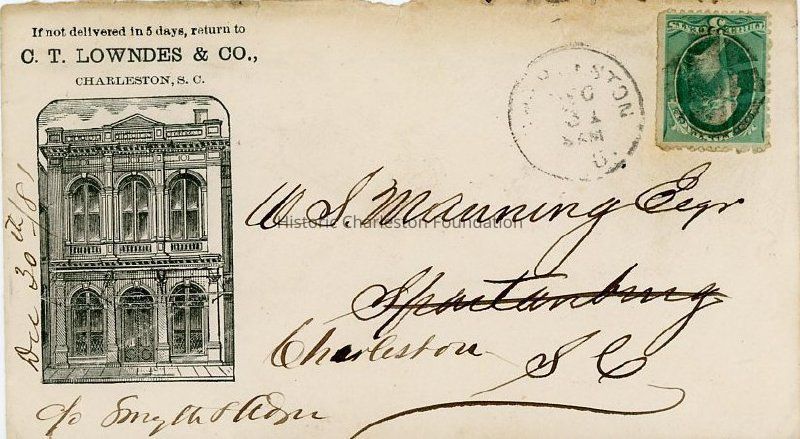 If not delivered in 5 days, return to
C. T. LOWNDES & CO.,
CHARLESTON, S. C.
DEC
31
5 AM
W S Manning Esqr
Historic Charleston Foundation
Spartanburg
Charleston S C
Dec 30th/81
c/o Smyth & Adger